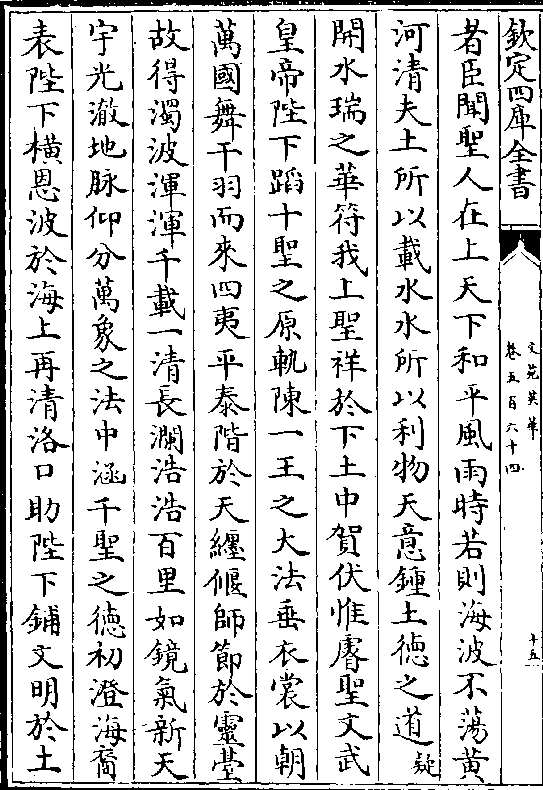 欽定四庫全書
文苑英華
卷五百六十四
十五
者臣聞聖人在上天下和平風雨時若則海波不蕩黃
河清夫土所以載水水所以利物天意鍾土德之道疑
開水瑞之華符我上聖祥於下土中賀伏惟睿聖文武
皇帝陛下蹈十聖之原軌陳一王之大法垂衣裳以朝
萬國舞干羽而來四夷平泰階於天纏偃師節於靈臺
故得濁波渾渾千載一清長瀾浩浩百里如鏡氣新天
宇光澈地脉仰分萬象之法中涵千聖之德初澄海裔
表陛下橫恩波於海上再清洛口助陛下鋪文明於土